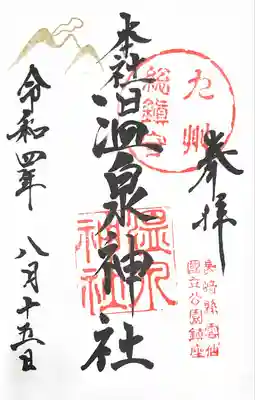 奉拝
長崎縣雲仙
國立公園鎮座
九州
総鎮守
本社温泉神社
温泉
神社
令和四年八月十五日